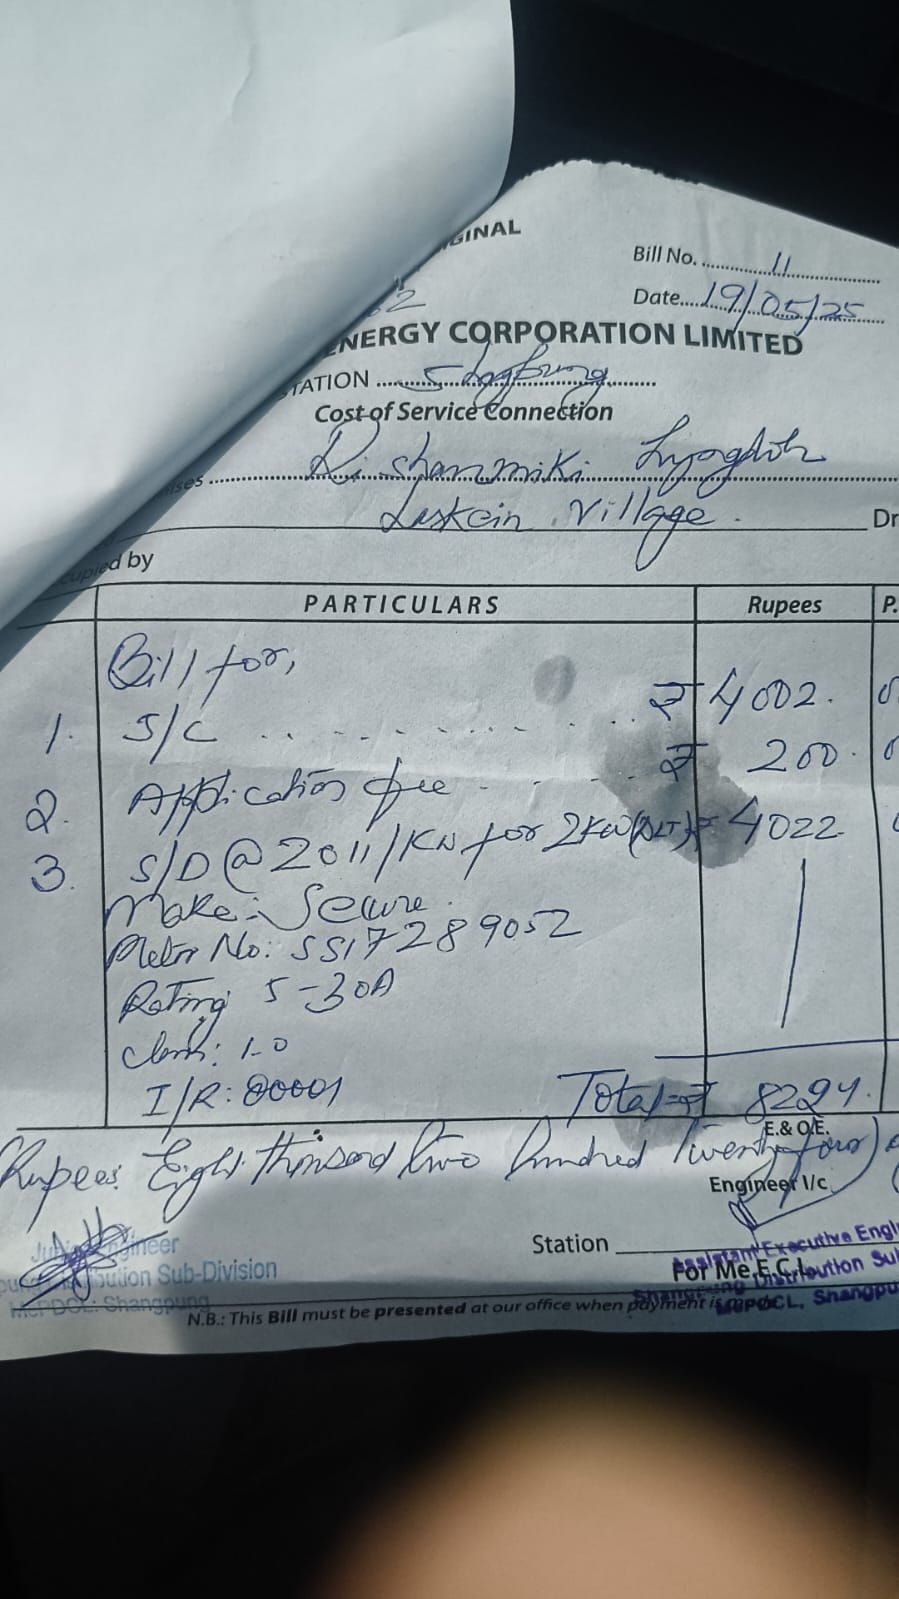 GINAL
Bill No. 11
Date 19/05/25
ENERGY CORPORATION LIMITED
TATION Shangpung
Cost of Service Connection
ises Ri shanmiki Lyngdoh
Laskein Village. Dr
cupied by
PARTICULARS Rupees P.
Bill for,
1. S/C ₹ 4002.
2. Application fee ₹ 200.
3. S/D @ 2011/KW for 2KW(DLT)₹ 4022
Make: Secure
Meter No: SS17289052
Rating 5-30A
Class: 1.0
I/R: 00001 Total=₹ 8224.
E.& O.E.
Rupees Eight thousand two hundred Twenty four)
Engineer I/c
Junior Engineer
bution Sub-Division
MePDCL: Shangpung
Station
Assistant Executive Engi
For Me.E.C.L.
Shangpung Distribution Su
MePDCL, Shangpu
N.B.: This Bill must be presented at our office when payment is made